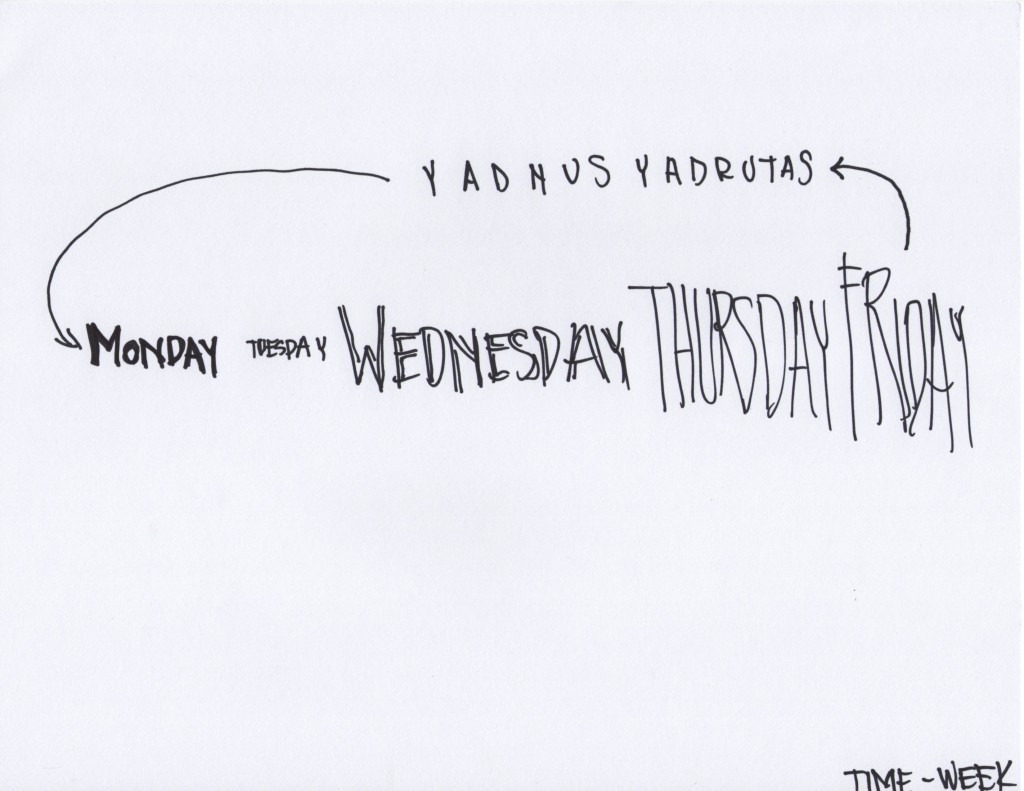 YADNUS YADRUTAS
MONDAY TUESDAY WEDNESDAY THURSDAY FRIDAY
TIME - WEEK